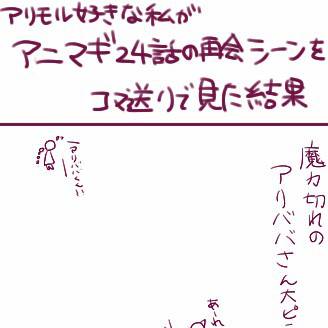 アリモル好きな私が
アニマギ24話の再会シーンを
コマ送りで見た結果
魔力切れの
アリババさん大ピ
アリババくんい
あーれ